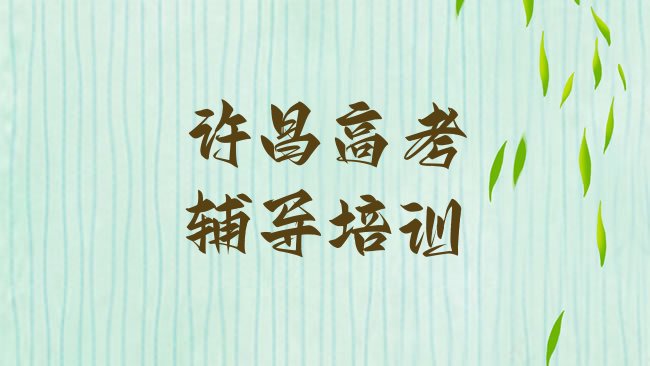 许昌高考
辅导培训